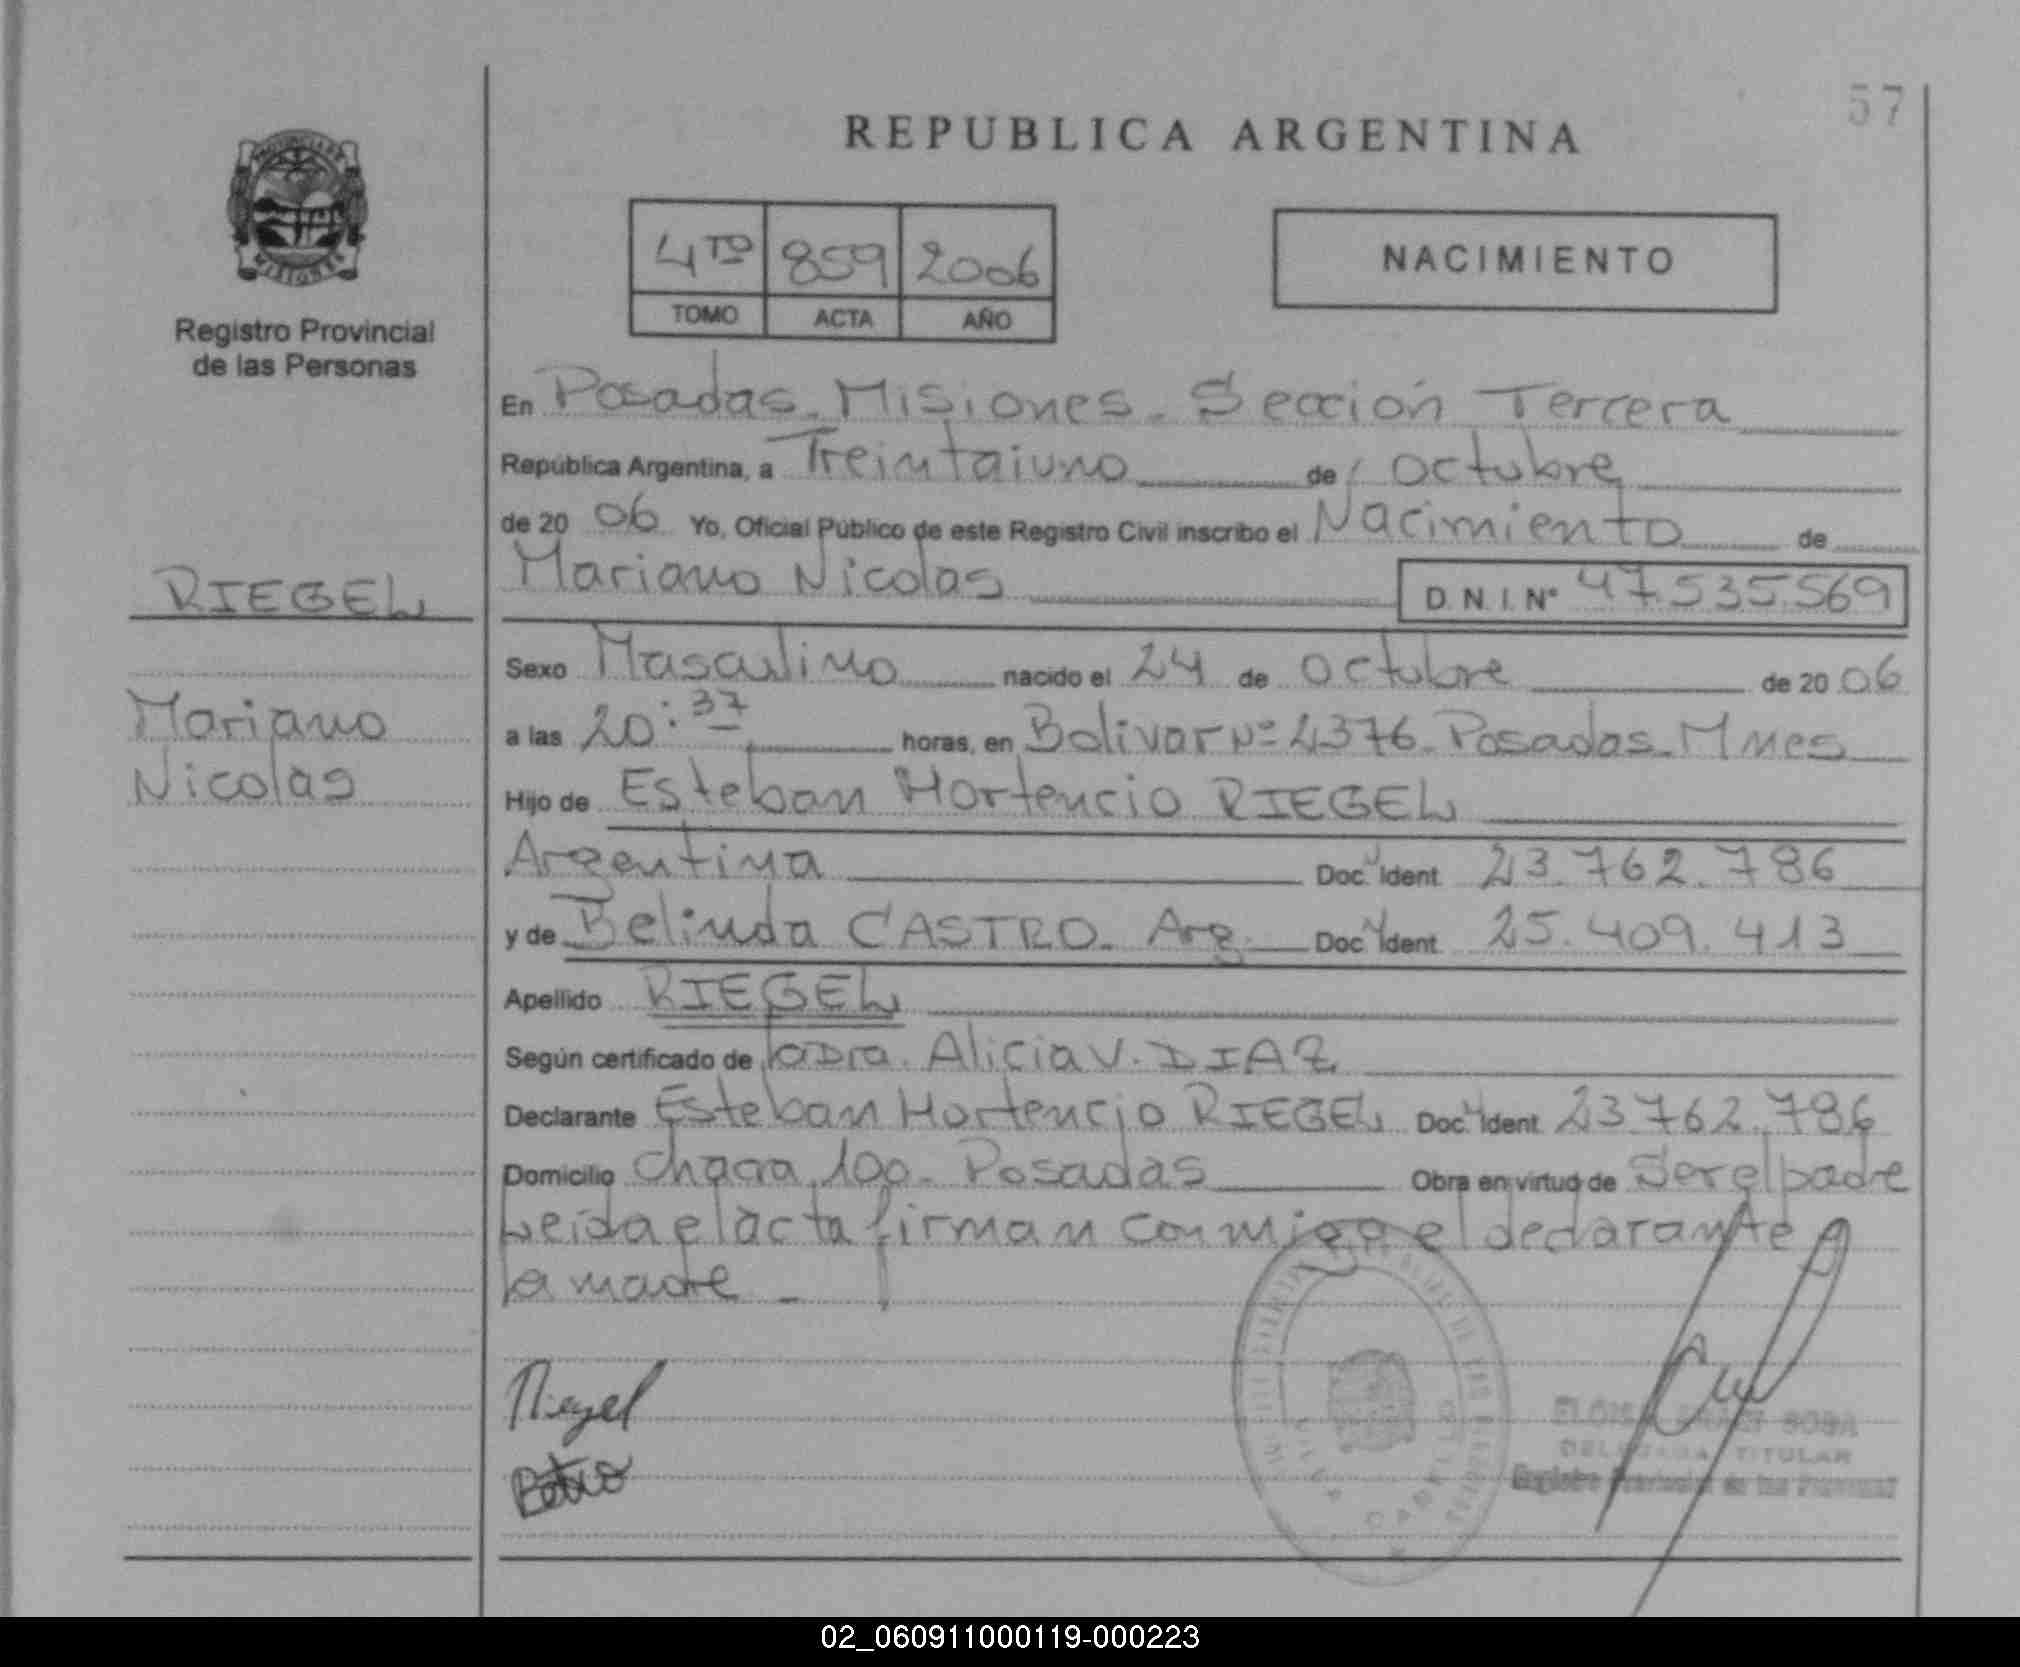 57
REPUBLICA ARGENTINA
4TO 859 2006
TOMO ACTA AÑO
NACIMIENTO
MISIONES
Registro Provincial
de las Personas
En Posadas. Misiones. Sección Tercera
República Argentina, a Treintaiuno de Octubre
de 20 06 Yo, Oficial Público de este Registro Civil inscribo el Nacimiento de
RIEGEL
Mariano Nicolas D.N.I. Nº 47.535.569
Sexo Masculino nacido el 24 de Octubre de 20 06
Mariano
Nicolas
a las 20:37 horas, en Bolivar Nº 2376. Posadas. Mnes
Hijo de Esteban Hortencio RIEGEL
Argentina Doc. Ident. 23.762.786
y de Belinda CASTRO. Arg. Doc. Ident. 25.409.413
Apellido RIEGEL
Según certificado de la Dra. Alicia V. DIAZ
Declarante Esteban Hortencio RIEGEL Doc. Ident. 23.762.786
Domicilio Chacra 100. Posadas Obra en virtud de Ser el padre
Leída el acta firman conmigo el declarante y
la madre. -
Riegel
DELEGADA TITULAR
Registro Provincial de las Personas
02_060911000119-000223